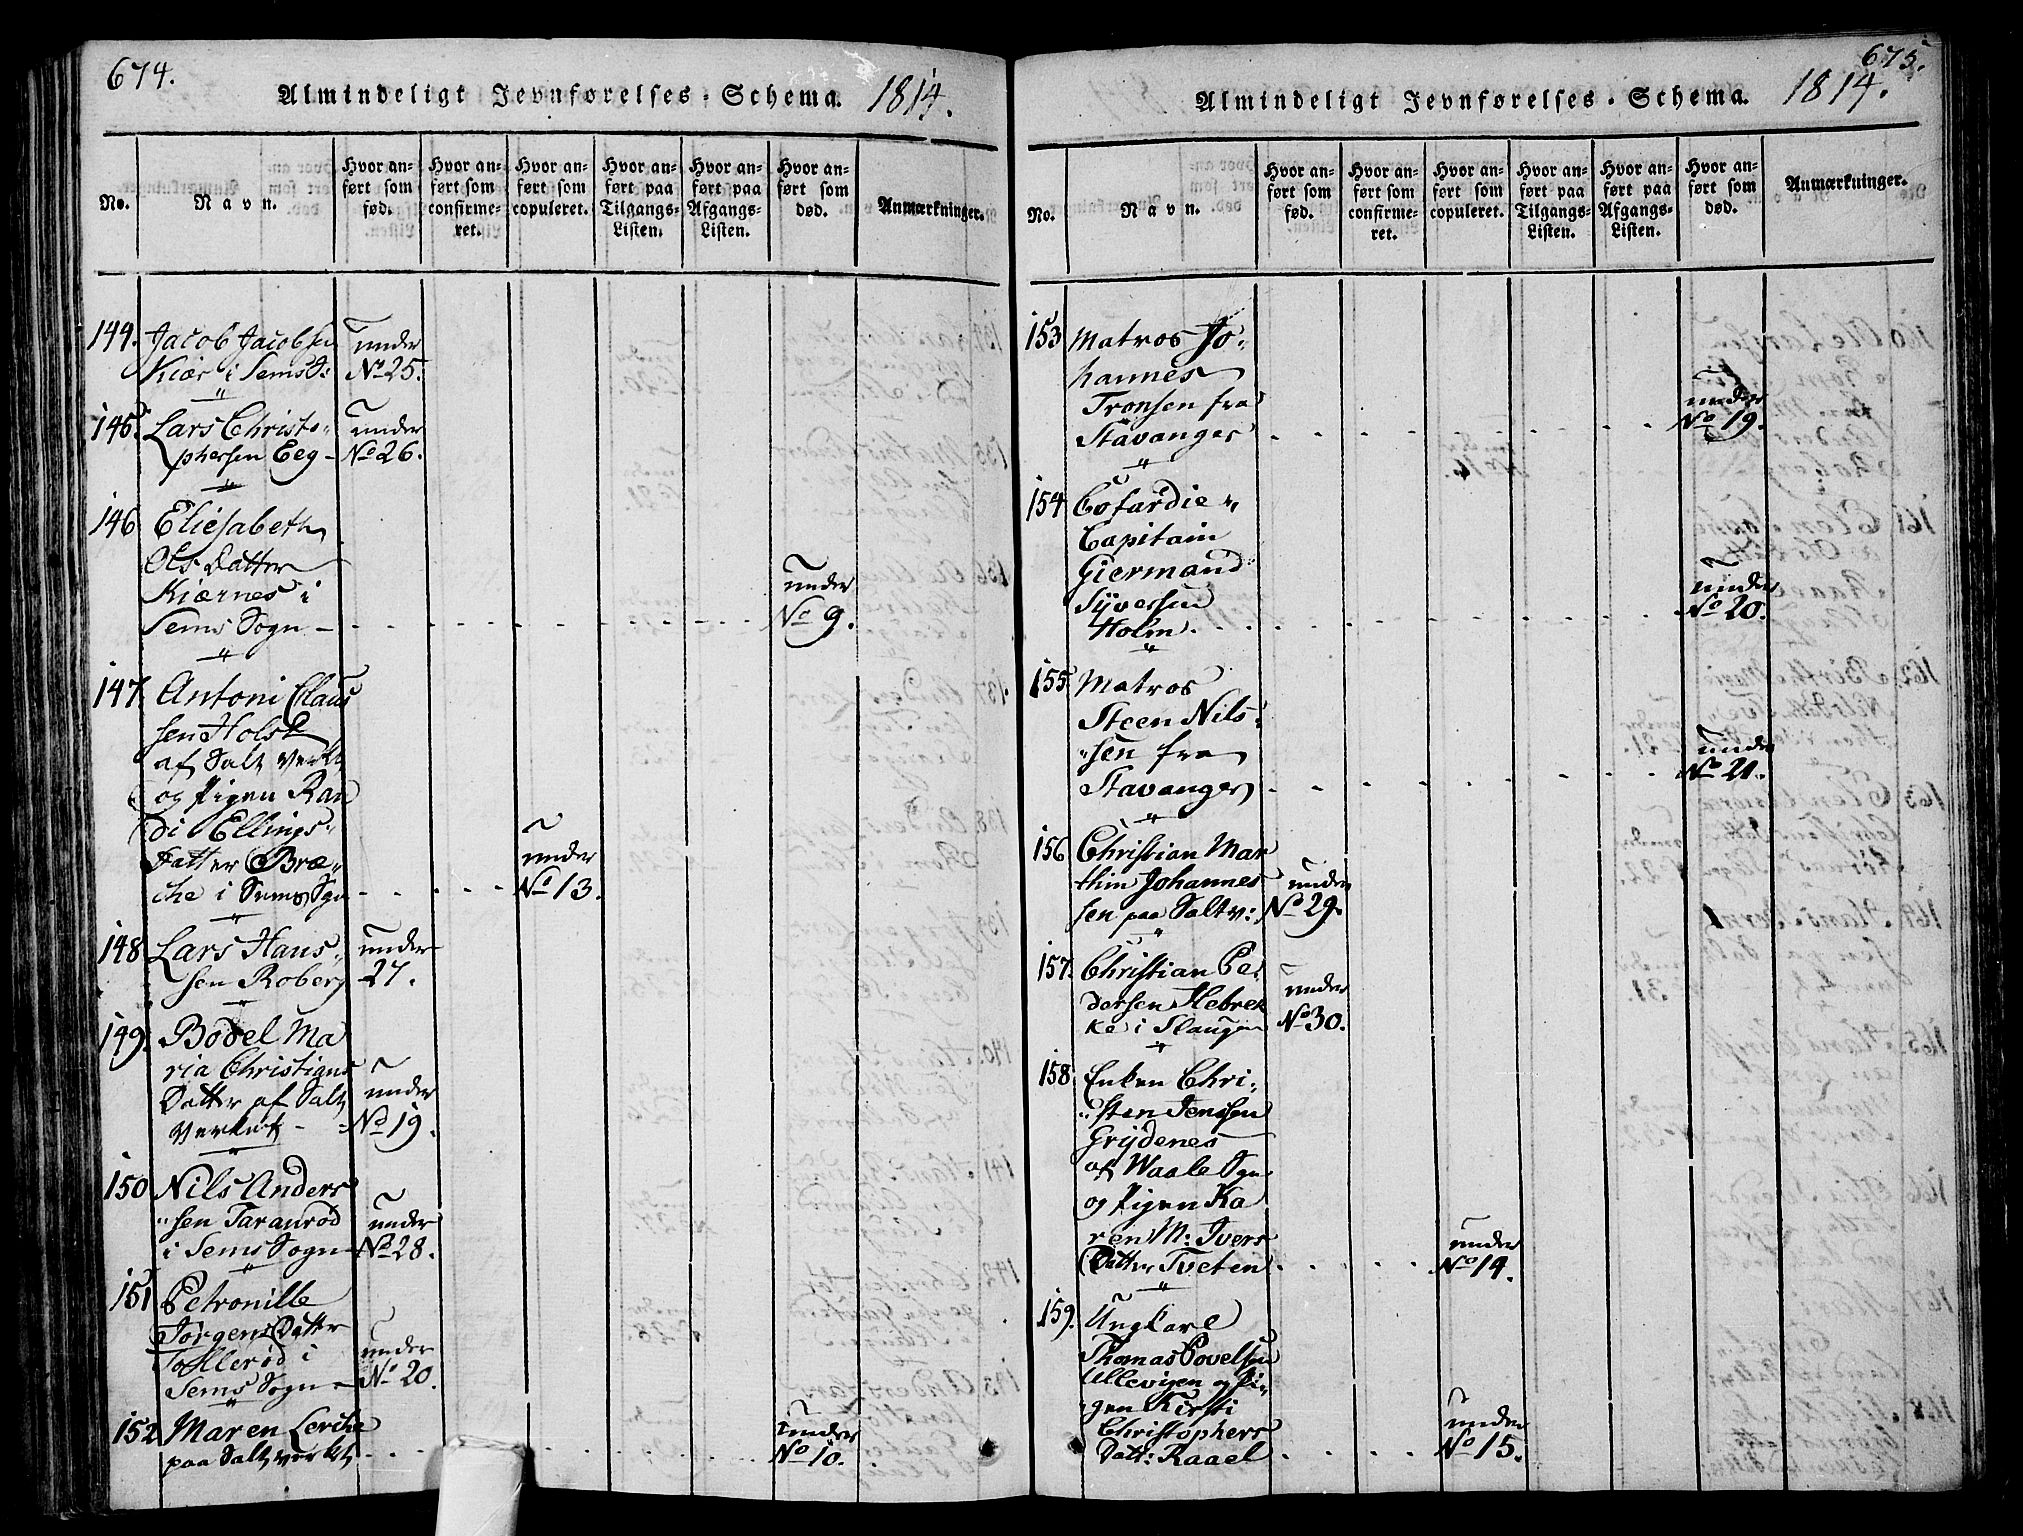 674.
Almindeligt Jevnførelses-Schema. 1814.
No.
Navn.
Hvor an-
ført som
fød.
Hvor an-
ført som
confirme-
ret.
Hvor an-
ført som
copuleret.
Hvor an-
ført paa
Tilgangs-
Listen.
Hvor an-
ført paa
Afgangs-
Listen.
Hvor an-
ført som
død.
Anmærkninger.
144. Jacob Jacobsen under
Kiær i Sems S: No 25.
145. Lars Christo- under
phersen Eeg - No 26.
146 Eliesabeth
Ols Datter
Kiærnes i under
Sems Sogn - No 9.
147. Antoni Claus
sen Holst
af Salt Verkt
og Pigen Ran
di Ellings-
Datter Bræ- under
che i Sems Sgn No 13.
148 Lars Hans- under
sen Roberg 27.
149. Bodel Ma
ria Christians
Datter af Salt under
Verket - No 19.
150 Nils Anders
sen Taranrød under
i Sems Sogn No 28.
151 Petronille
Jørgens Datter
Tollerød i under
Sems Sogn - No 20.
152 Maren Lerche under
paa Saltverket No 10.
675.
Almindeligt Jevnførelses-Schema. 1814.
No.
Navn.
Hvor an-
ført som
fød.
Hvor an-
ført som
confirme-
ret.
Hvor an-
ført som
copuleret.
Hvor an-
ført paa
Tilgangs-
Listen.
Hvor an-
ført paa
Afgangs-
Listen.
Hvor an-
ført som
død.
Anmærkninger.
153 Matros Jo-
hannes
Tronsen fra under
Stavanger No 19.
154 Cofardie-
Capitain
Giermand
Syversen under
Holm. No 20.
155 Matros
Steen Nils-
sen fra under
Stavanger No 21.
156 Christian Mar
thin Johannes under
sen paa Saltv: No 29.
157. Christian Pe-
dersen Hebrek under
ke i Slaugen No 30.
158 Enken Chri-
sten Jenssen
Grydenes
af Waale Sgn
og Pigen Ka
ren M: Ivers under
Datter Tveten. No 14.
159. Ungkarl
Thomas Povelsen
Ullevigen og Pi-
gen Kirsti
Christophers under
Datt: Raael No 15.